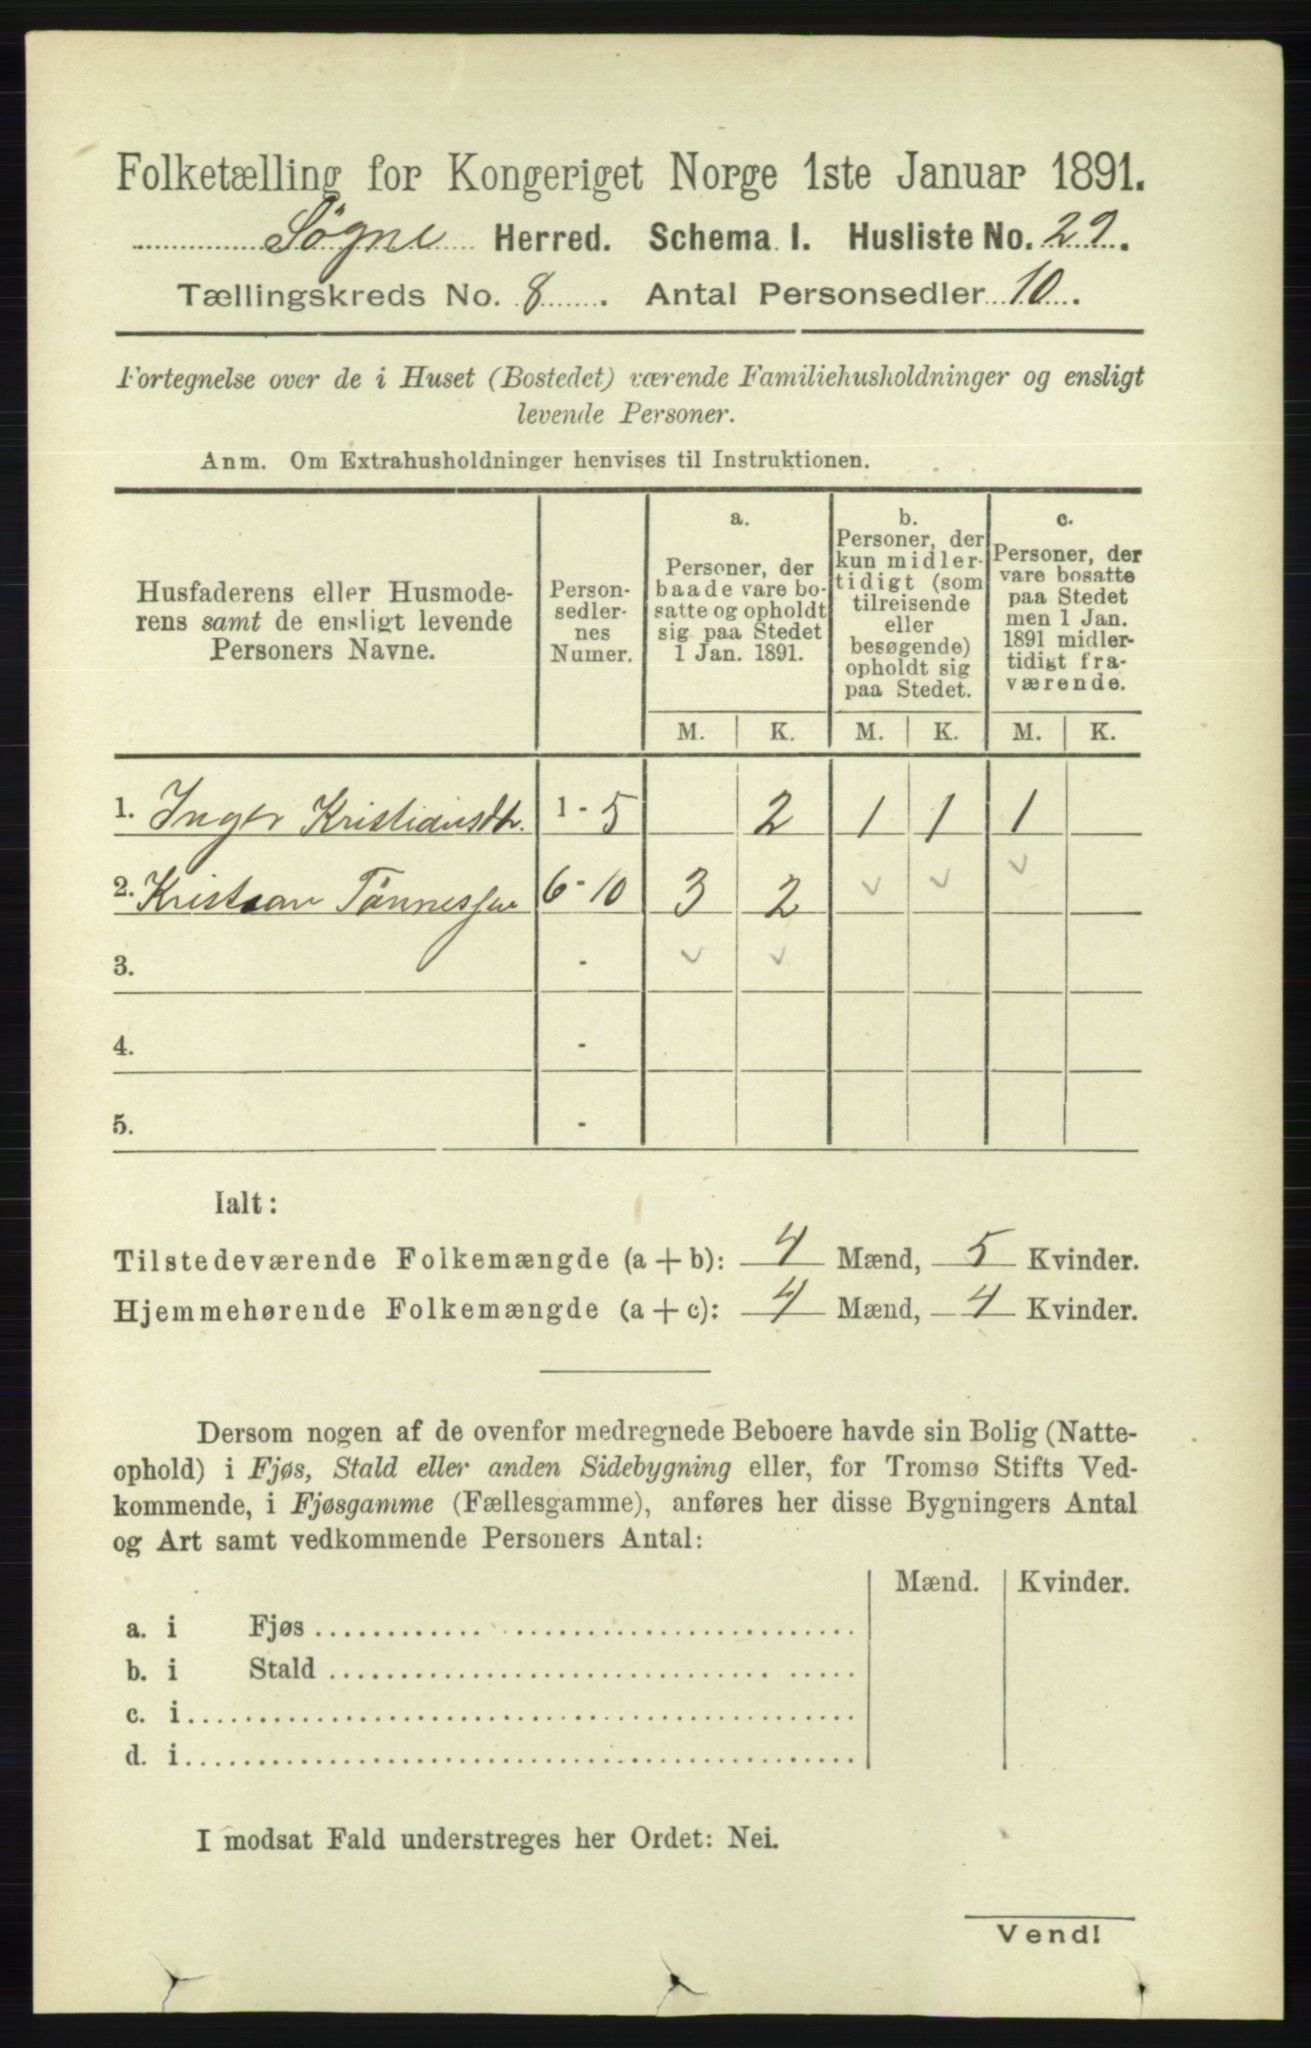 Folketælling for Kongeriget Norge 1ste Januar 1891.
Søgne Herred. Schema I. Husliste No. 29.
Tællingskreds No. 8. Antal Personsedler 10.
Fortegnelse over de i Huset (Bostedet) værende Familiehusholdninger og ensligt
levende Personer.
Anm. Om Extrahusholdninger henvises til Instruktionen.
Husfaderens eller Husmode-
rens samt de ensligt levende
Personers Navne.
Person-
sedler-
nes
Numer.
a.
Personer, der
baade vare bo-
satte og opholdt
sig paa Stedet
1 Jan. 1891.
b.
Personer, der
kun midler-
tidigt (som
tilreisende
eller
besøgende)
opholdt sig
paa Stedet.
c.
Personer, der
vare bosatte
paa Stedet
men 1 Jan.
1891 midler-
tidigt fra-
værende.
M. K. M. K. M. K.
1. Inger Kristiansdtr. 1 - 5 2 1 1 1
2. Kristian Tønnessen 6 - 10 3 2
3. -
4. -
5. -
Ialt:
Tilstedeværende Folkemængde (a + b): 4 Mænd, 5 Kvinder.
Hjemmehørende Folkemængde (a + c): 4 Mænd, 4 Kvinder.
Dersom nogen af de ovenfor medregnede Beboere havde sin Bolig (Natte-
ophold) i Fjøs, Stald eller anden Sidebygning eller, for Tromsø Stifts Ved-
kommende, i Fjøsgamme (Fællesgamme), anføres her disse Bygningers Antal
og Art samt vedkommende Personers Antal:
Mænd. Kvinder.
a. i Fjøs
b. i Stald
c. i
d. i
I modsat Fald understreges her Ordet: Nei.
Vend!